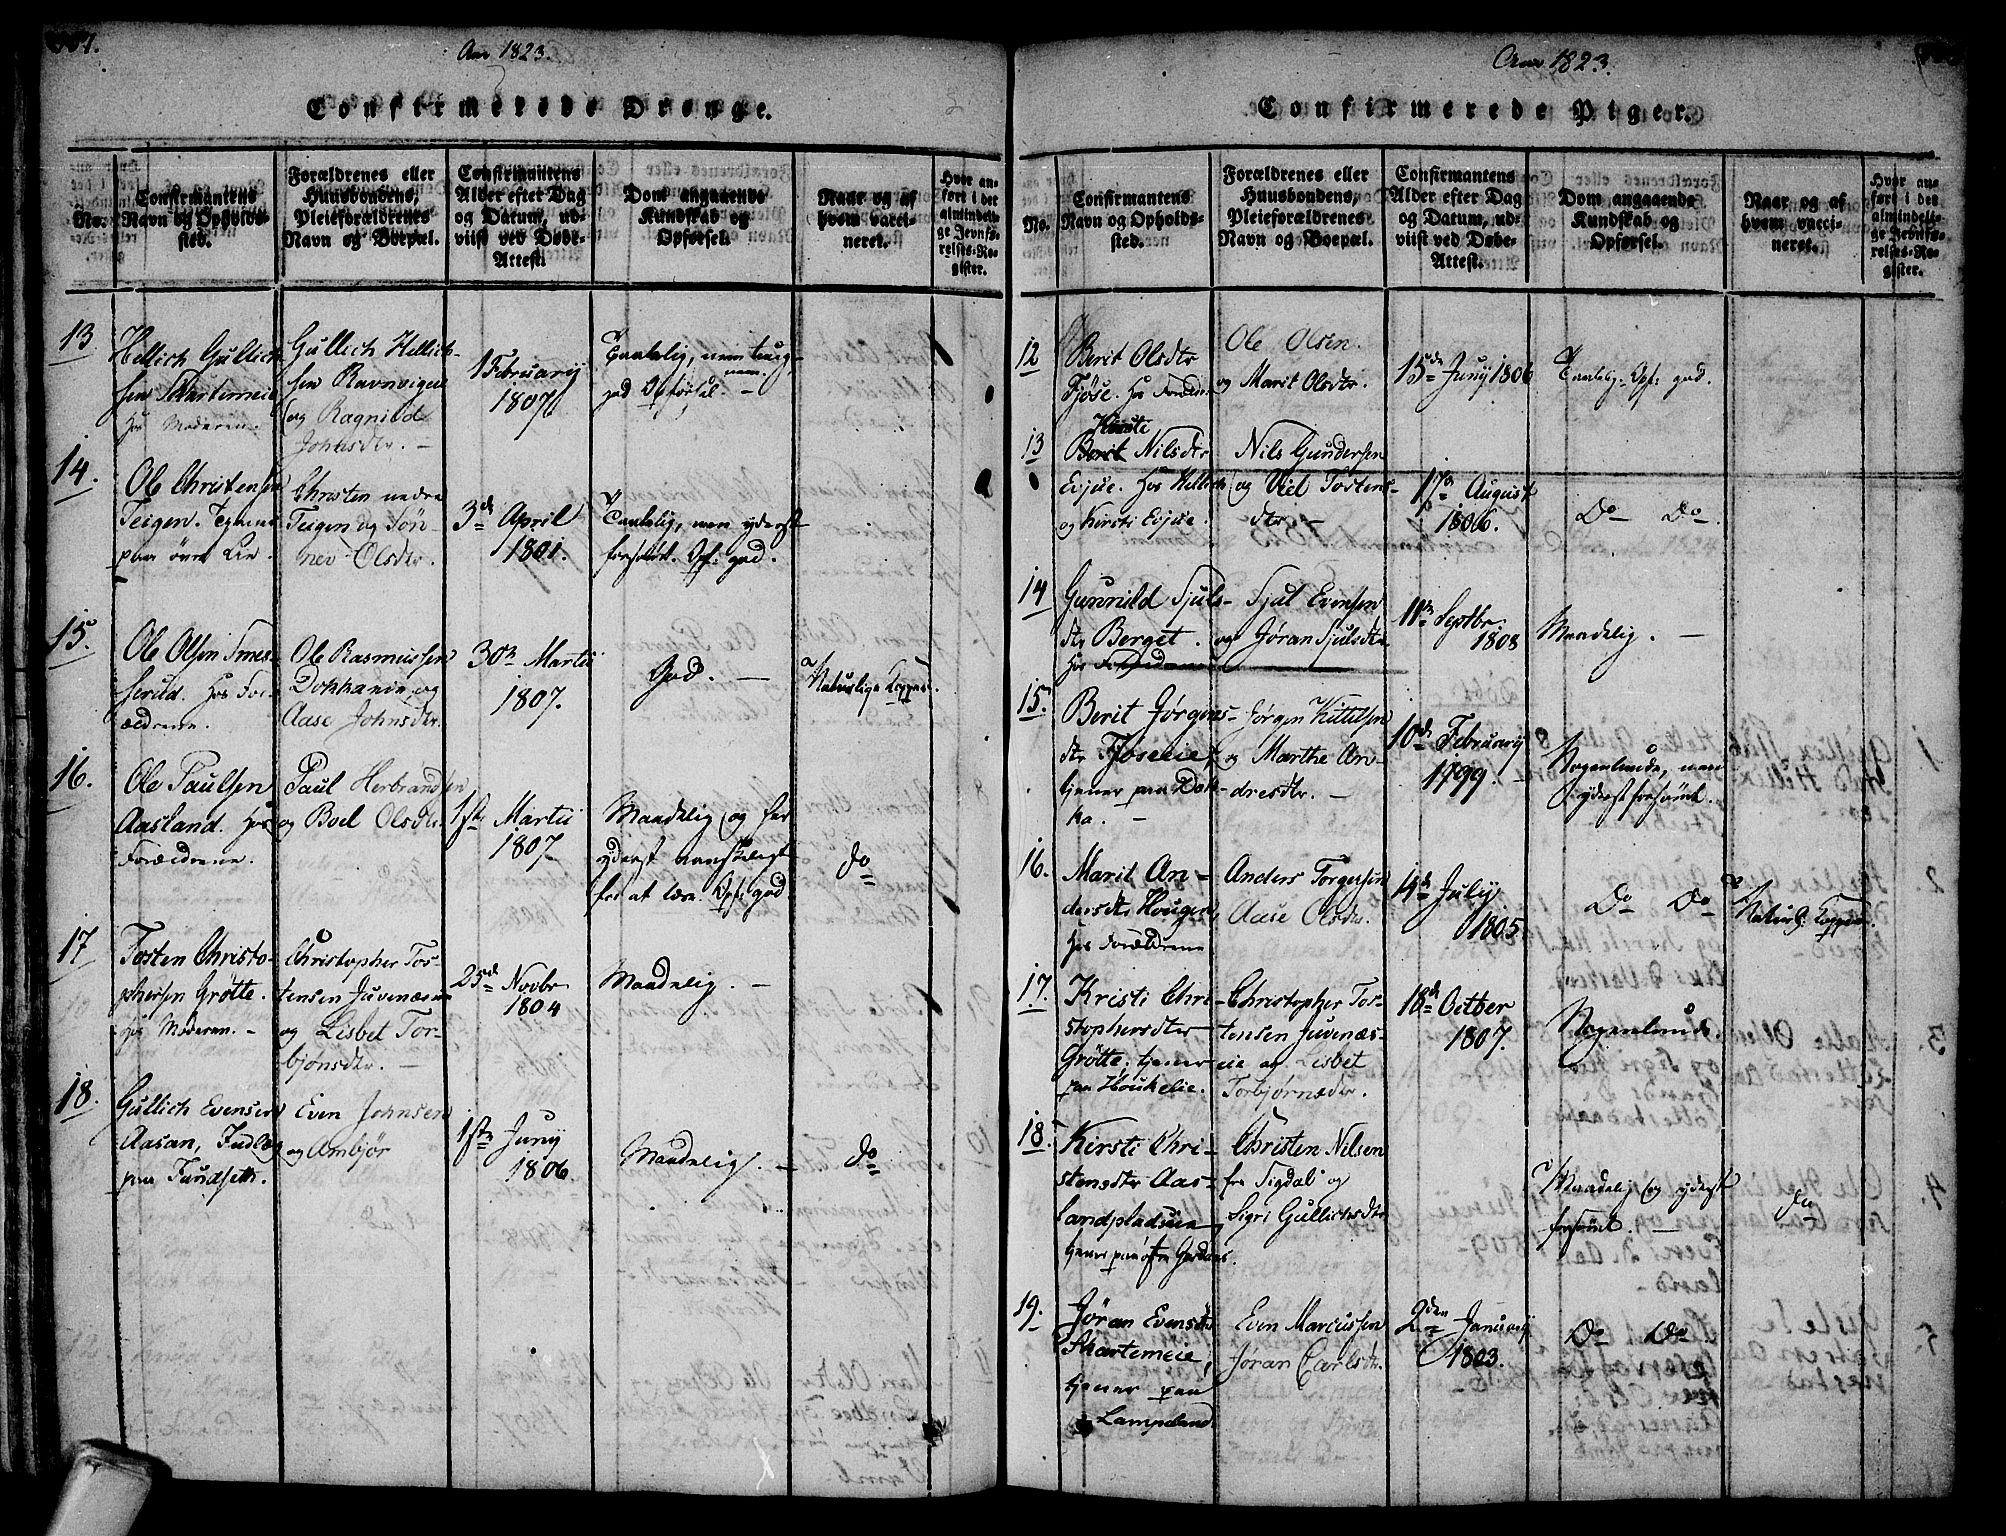 Aar 1823.
Confirmerede Drenge.
No.
Confirmantens
Navn og Opholds-
sted.
Forældrenes eller
Huusbondens,
Pleieforældrenes
Navn og Boepæl.
Confirmantens
Alder efter Dag
og Datum, ud-
viist ved Døbe-
Attest.
Dom angaaende
Kundskab og
Opførsel.
Naar og af
hvem vacci-
neret.
Hvor an-
ført i det
almindeli-
ge Jevnfø-
relses-Re-
gister.
13
Hellich Gullich-
sen Skartemeie
hos Moderen.
Gullich Hellich-
sen Ravnvigen
og Ragnild
Johnsdtr. -
1 Februarij
1807
Taalelig, men
god Opførsel. -
14.
Ole Christensen
Teigen. Tjener
paa øvre Lie.
Christen nedre
Teigen og Søn-
nev Olsdtr.
3de April
1801.
Taalelig, men yderst
forsømt. Opf: god.
15.
Ole Olsen Smes-
serud. Hos For-
ældrene.
Ole Rasmussen
Dokkanie og
Aase Johnsdtr.
30te Martii
1807.
God. -
Naturlige Kopper.
16.
Ole Paulsen
Aasland. Hos
Forældrene.
Paul Herbrandsen
og Boel Olsdtr.
1ste Martii
1807
Maadelig og har
yderst vanskeligt
for at lære. Opf: god.
do
17
Tosten Christo-
phersen Grøtte.
hos Moderen. -
Christopher Tos-
tensen Juvenæseie
og Lisbet Tor-
bjønsdtr. -
25de Novbr
1804
Maadelig. -
18.
Gullich Evensen
Aasan, Indlæg
paa Fundseth.
Even Johnsen
og Ambjør
1ste Juny
1806.
Maadelig. -
do
Aar 1823.
Confirmerede Piger.
No.
Confirmantens
Navn og Opholds-
sted.
Forældrenes eller
Huusbondens,
Pleieforældrenes
Navn og Boepæl.
Confirmantens
Alder efter Dag
og Datum, ud-
viist ved Døbe-
Attest.
Dom angaaende
Kundskab og
Opførsel.
Naar og af
hvem vacci-
neret.
Hvor an-
ført i det
almindeli-
ge Jevnfø-
relses-Re-
gister.
12
Berit Olsdtr
Fjøse. Hos Foræld:
Ole Olsen.
og Marit Olsdtr.
15de Juny 1806
Taalelig. Opf: god.
13
Berit Nilsdtr
Evjue. Hos Hellich
og Kirsti Evjue.
Nils Gundersen
og Viel Tostens-
dtr -
17de August
1806.
Do Do.
14
Gunnild Sjuls-
dtr Berget.
hos Forældrene
Sjul Evensen
og Jøran Sjulsdtr
11te Septbr.
1808
Maadelig. -
15.
Berit Jørgens-
dtr Fjøseeie,
tjener paa Dok-
ka. -
Jørgen Kittilsen
og Marthe An-
dresdtr. -
10de Februarij
1799.
Nogenlunde, men
yderst forsømt.
16.
Marit An-
dersdtr Hougen,
hos Forældrene
Anders Torgersen
Aase Olsdtr.
4de July
1805.
Do Do
Naturl: Kopper.
17.
Kristi Chri-
stophersdtr
Grøtte, tjener
paa Houkelie.
Christopher Tos-
tensen Juvenæs-
eie og Lisbet
Torbjørnsdtr.
18de Octber
1807.
Nogenlunde.
18.
Kirsti Chri-
stensdtr Aas-
landpladsen
tjener paa øfre Jordans.
Christen Nilsen
fra Sigdal og
Sigri Gullichsdtr
Maadelig og yderst
forsømt. -
do
19.
Jøran Evensdtr
Skartemeie,
tjener paa
Lampeland
Even Marcussen
Jøran Carlsdtr.
2den Januarij
1803.
Do Do